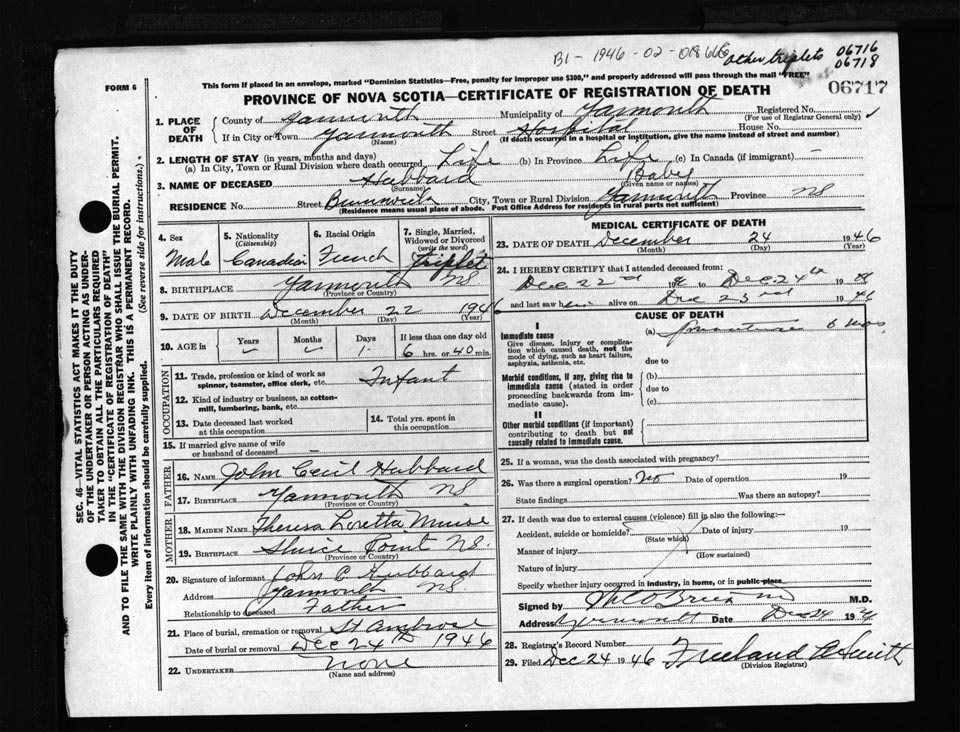 B1 - 1946 - 02 - 018666
other triplets 06716
06718
FORM 6
This form if placed in an envelope, marked "Dominion Statistics—Free, penalty for improper use $300," and properly addressed will pass through the mail "FREE"
06717
PROVINCE OF NOVA SCOTIA—CERTIFICATE OF REGISTRATION OF DEATH
SEC. 46—VITAL STATISTICS ACT MAKES IT THE DUTY
OF THE UNDERTAKER OR PERSON ACTING AS UNDER-
TAKER TO OBTAIN ALL THE PARTICULARS REQUIRED
IN THE "CERTIFICATE OF REGISTRATION OF DEATH"
AND TO FILE THE SAME WITH THE DIVISION REGISTRAR WHO SHALL ISSUE THE BURIAL PERMIT.
WRITE PLAINLY WITH UNFADING INK. THIS IS A PERMANENT RECORD.
Every item of information should be carefully supplied. (See reverse side for instructions.)
1. PLACE OF DEATH
County of Yarmouth Municipality of Yarmouth Registered No.
(For use of Registrar General only)
If in City or Town Yarmouth Street Hospital House No.
(Name) (If death occurred in a hospital or institution, give the name instead of street and number)
2. LENGTH OF STAY (in years, months and days)
(a) In City, Town or Rural Division where death occurred Life (b) In Province Life (c) In Canada (if immigrant) —
3. NAME OF DECEASED Hubbard Baby
(Surname) (Given name or names)
RESIDENCE No. Street Brunswick City, Town or Rural Division Yarmouth Province NS
(Residence means usual place of abode. Post Office Address for residents in rural parts not sufficient)
4. Sex
Male
5. Nationality
(Citizenship)
Canadian
6. Racial Origin
French
7. Single, Married,
Widowed or Divorced
(write the word)
triplet
8. BIRTHPLACE Yarmouth NS
(Province or Country)
9. DATE OF BIRTH December 22 1946
(Month) (Day) (Year)
10. AGE in
Years Months Days If less than one day old
1 6 hrs. or 40 min.
OCCUPATION
11. Trade, profession or kind of work as
spinner, teamster, office clerk, etc. Infant
12. Kind of industry or business, as cotton-
mill, lumbering, bank, etc.
13. Date deceased last worked
at this occupation
14. Total yrs. spent in
this occupation
15. If married give name of wife
or husband of deceased —
FATHER
16. Name John Cecil Hubbard
17. Birthplace Yarmouth NS
(Province or Country)
MOTHER
18. Maiden Name Theresa Loretta Muise
19. Birthplace Sluice Point NS.
(Province or Country)
20. Signature of informant John C Hubbard
Address Yarmouth NS.
Relationship to deceased Father
21. Place of burial, cremation or removal St Ambrose
Date of burial or removal Dec 24th 1946
22. UNDERTAKER None
(Name and address)
MEDICAL CERTIFICATE OF DEATH
23. DATE OF DEATH December 24 1946
(Month) (Day) (Year)
24. I HEREBY CERTIFY that I attended deceased from:
Dec 22nd 19 to Dec 24th 19
and last saw him alive on Dec 23rd 1946
CAUSE OF DEATH
I
Immediate cause
Give disease, injury or compli-
cation which caused death, not the
mode of dying, such as heart failure,
asphyxia, asthenia, etc.
(a) premature 6 mos.
due to
Morbid conditions, if any, giving rise to
immediate cause (stated in order
proceeding backwards from im-
mediate cause).
(b)
due to
(c)
II
Other morbid conditions (if important)
contributing to death but not
causally related to immediate cause.
25. If a woman, was the death associated with pregnancy?
26. Was there a surgical operation? No Date of operation 19
State findings Was there an autopsy?
27. If death was due to external causes (violence) fill in also the following:—
Accident, suicide or homicide? Date of injury 19
(State which)
Manner of injury
(How sustained)
Nature of injury
Specify whether injury occurred in industry, in home, or in public place
Signed by M.D.
Address Yarmouth Date Dec 24 19
28. Registrar's Record Number
29. Filed Dec 24 1946 Freeland A Smith
(Division Registrar)